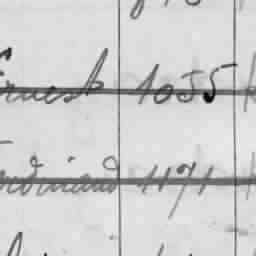 Ernest 1055
Ferdinand 1171